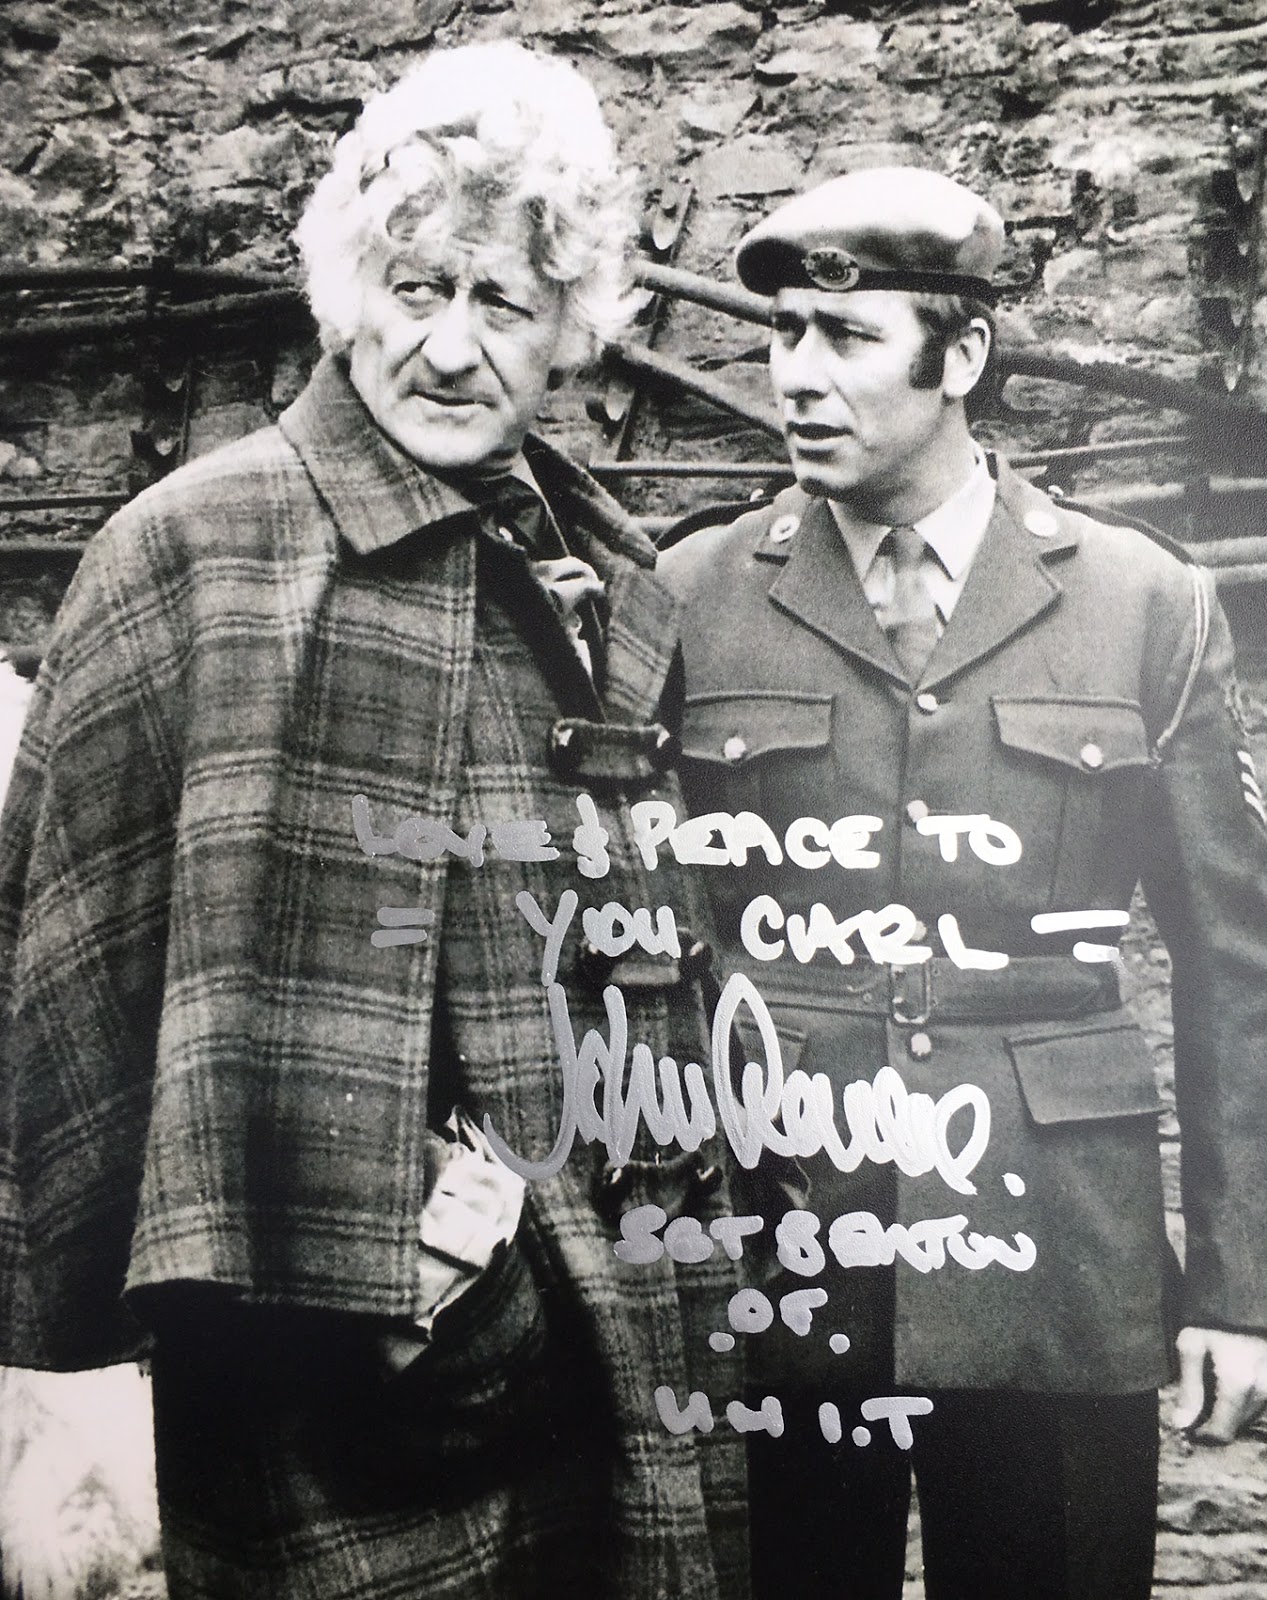 LOVE & PEACE TO
= YOU CARL =
John Levene.
SGT BENTON
.OF.
UNI.T